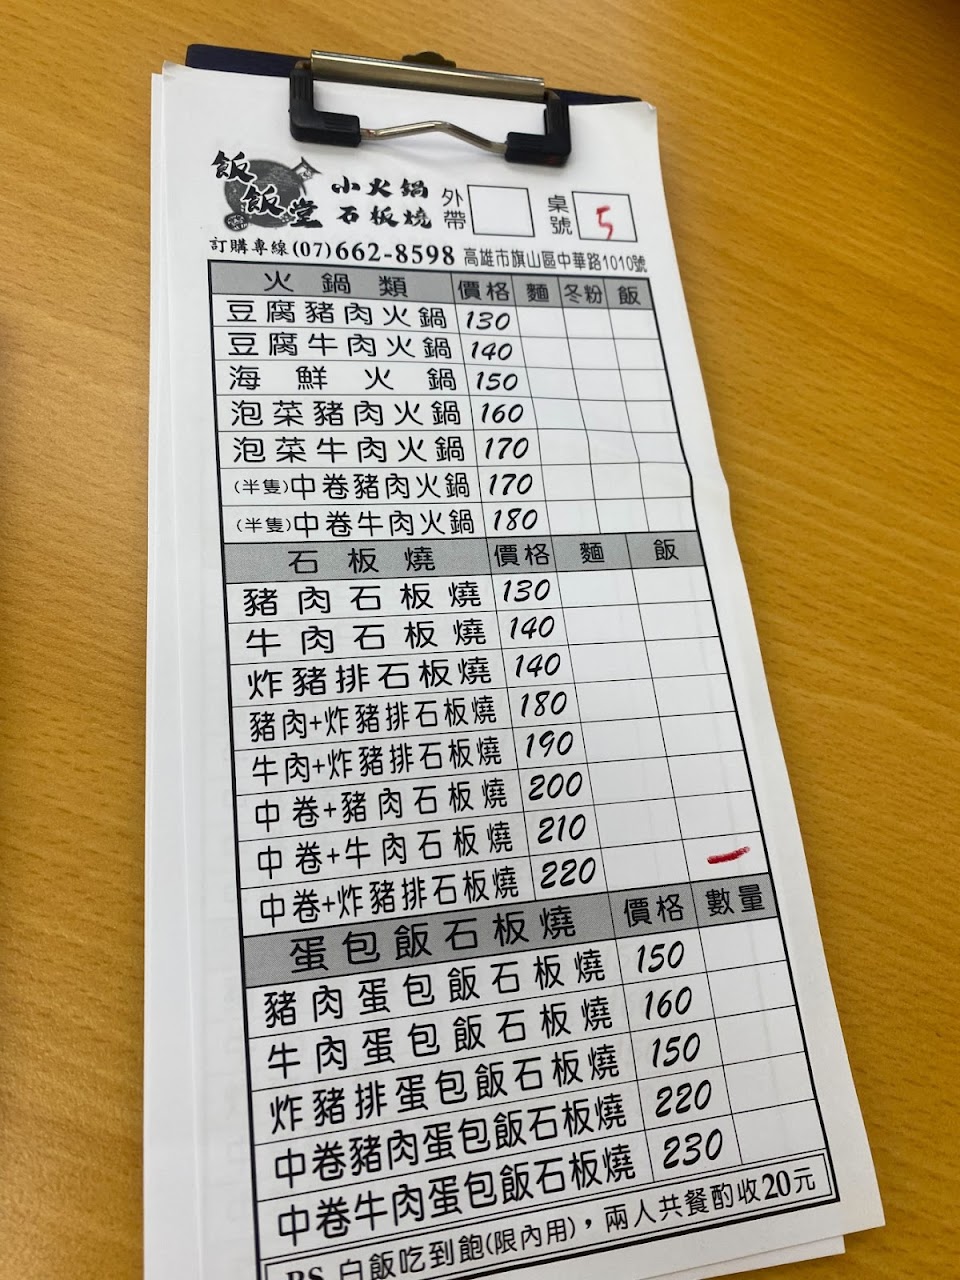 飯飯堂
小火鍋
石板燒
外帶
桌號 5
訂購專線(07)662-8598 高雄市旗山區中華路1010號
火鍋類 價格 麵 冬粉 飯
豆腐豬肉火鍋 130
豆腐牛肉火鍋 140
海鮮火鍋 150
泡菜豬肉火鍋 160
泡菜牛肉火鍋 170
(半隻)中卷豬肉火鍋 170
(半隻)中卷牛肉火鍋 180
石板燒 價格 麵 飯
豬肉石板燒 130
牛肉石板燒 140
炸豬排石板燒 140
豬肉+炸豬排石板燒 180
牛肉+炸豬排石板燒 190
中卷+豬肉石板燒 200
中卷+牛肉石板燒 210
中卷+炸豬排石板燒 220
蛋包飯石板燒 價格 數量
豬肉蛋包飯石板燒 150
牛肉蛋包飯石板燒 160
炸豬排蛋包飯石板燒 150
中卷豬肉蛋包飯石板燒 220
中卷牛肉蛋包飯石板燒 230
PS 白飯吃到飽(限內用)，兩人共餐酌收20元